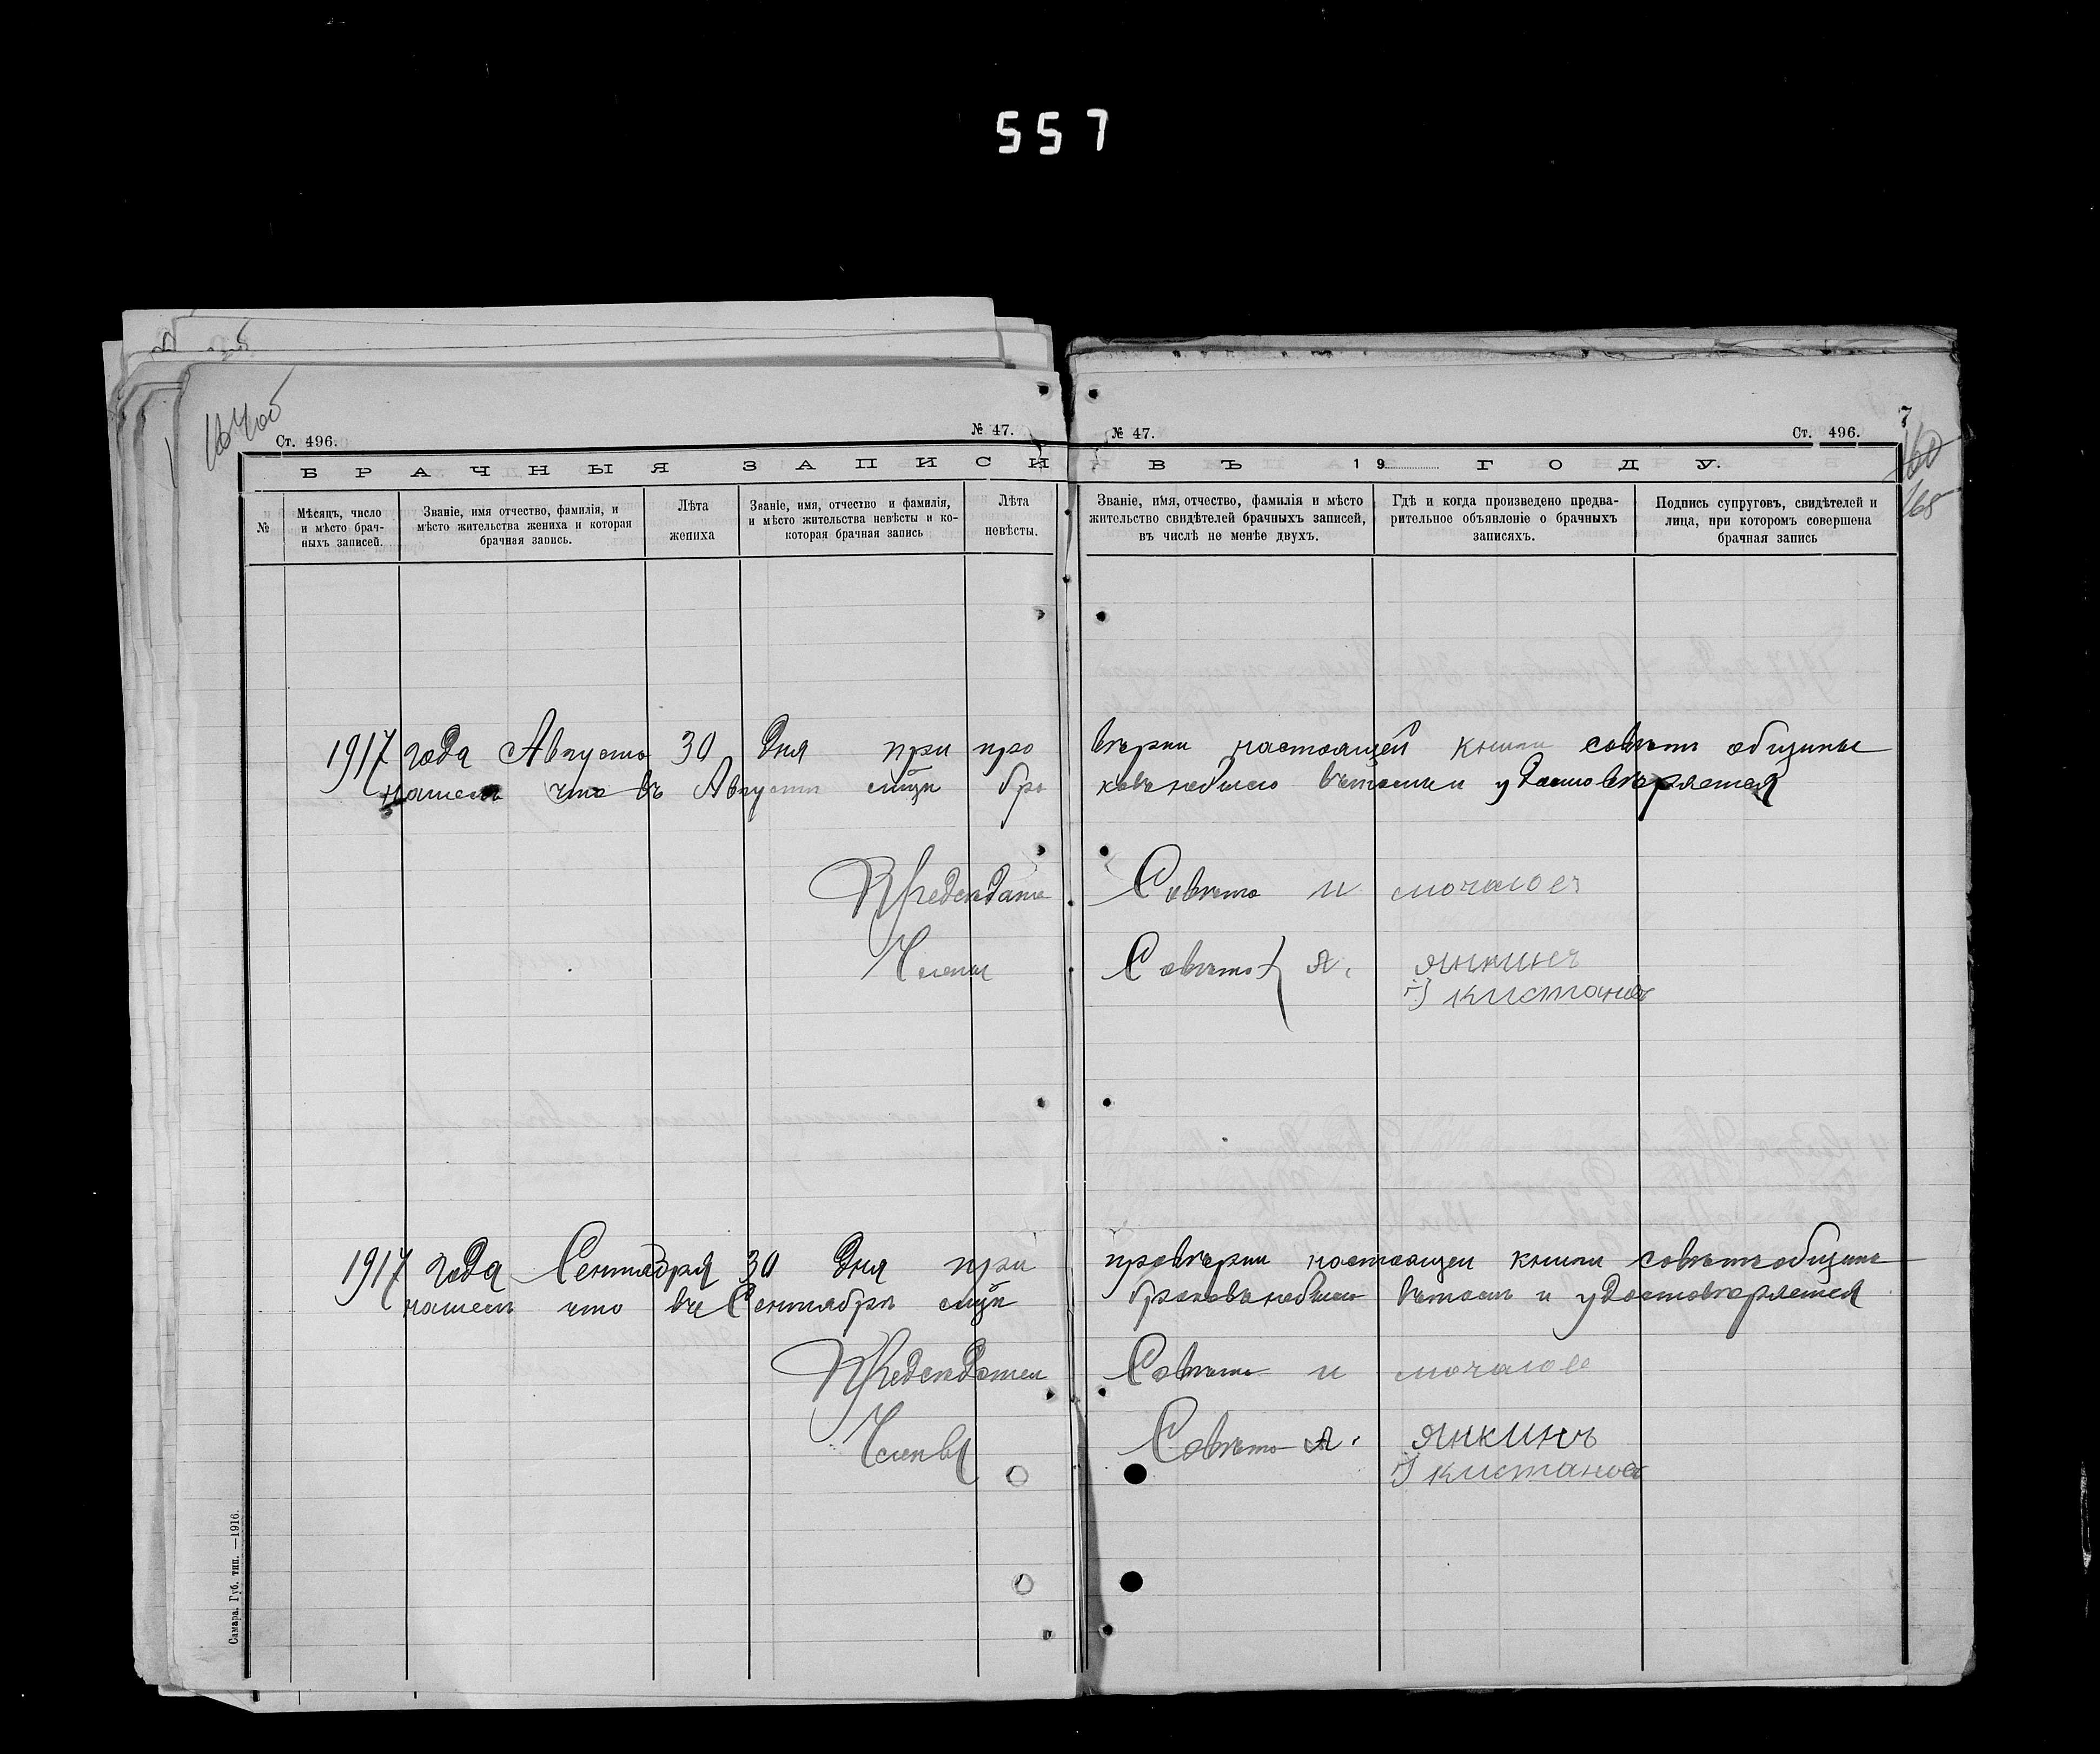 557
164 об
Ст. 496.
№ 47.
№ 47.
Ст. 496.
7
160
165
БРАЧНЫЯ ЗАПИСИ ВЪ 19 ГОДУ.
№
Мѣсяцъ, число и мѣсто брач-
ныхъ записей.
Званіе, имя отчество, фамилія, и
мѣсто жительства жениха и которая
брачная запись.
Лѣта
жениха
Званіе, имя, отчество и фамилія,
и мѣсто жительства невѣсты и ко-
которая брачная запись
Лѣта
невѣсты.
Званіе, имя, отчество, фамилія и мѣсто
жительство свидѣтелей брачныхъ записей,
въ числѣ не менѣе двухъ.
Гдѣ и когда произведено предва-
рительное объявленіе о брачныхъ
записяхъ.
Подпись супруговъ, свидѣтелей и
лица, при которомъ совершена
брачная запись
1917 года Августа 30 дня при про вѣрки настоящей книги совѣтъ общины
нашелъ что въ Августѣ сиць бра ковъ небыло вътомъ и удостовѣряется
Предсѣдате Совѣта и мочалов
Члены Совѣта я. янкинъ
кистанов
1917 года Сентября 30 дня при провѣрки настоящеи книги совѣтъ общины
нашелъ что въ Сентябрѣ браковъ небыло вътомъ и удостовѣряется
Предсѣдател Совѣта и мочалов
Члены Совѣта я. янкинъ
кистанов
Самара. Губ. тип. —1916.